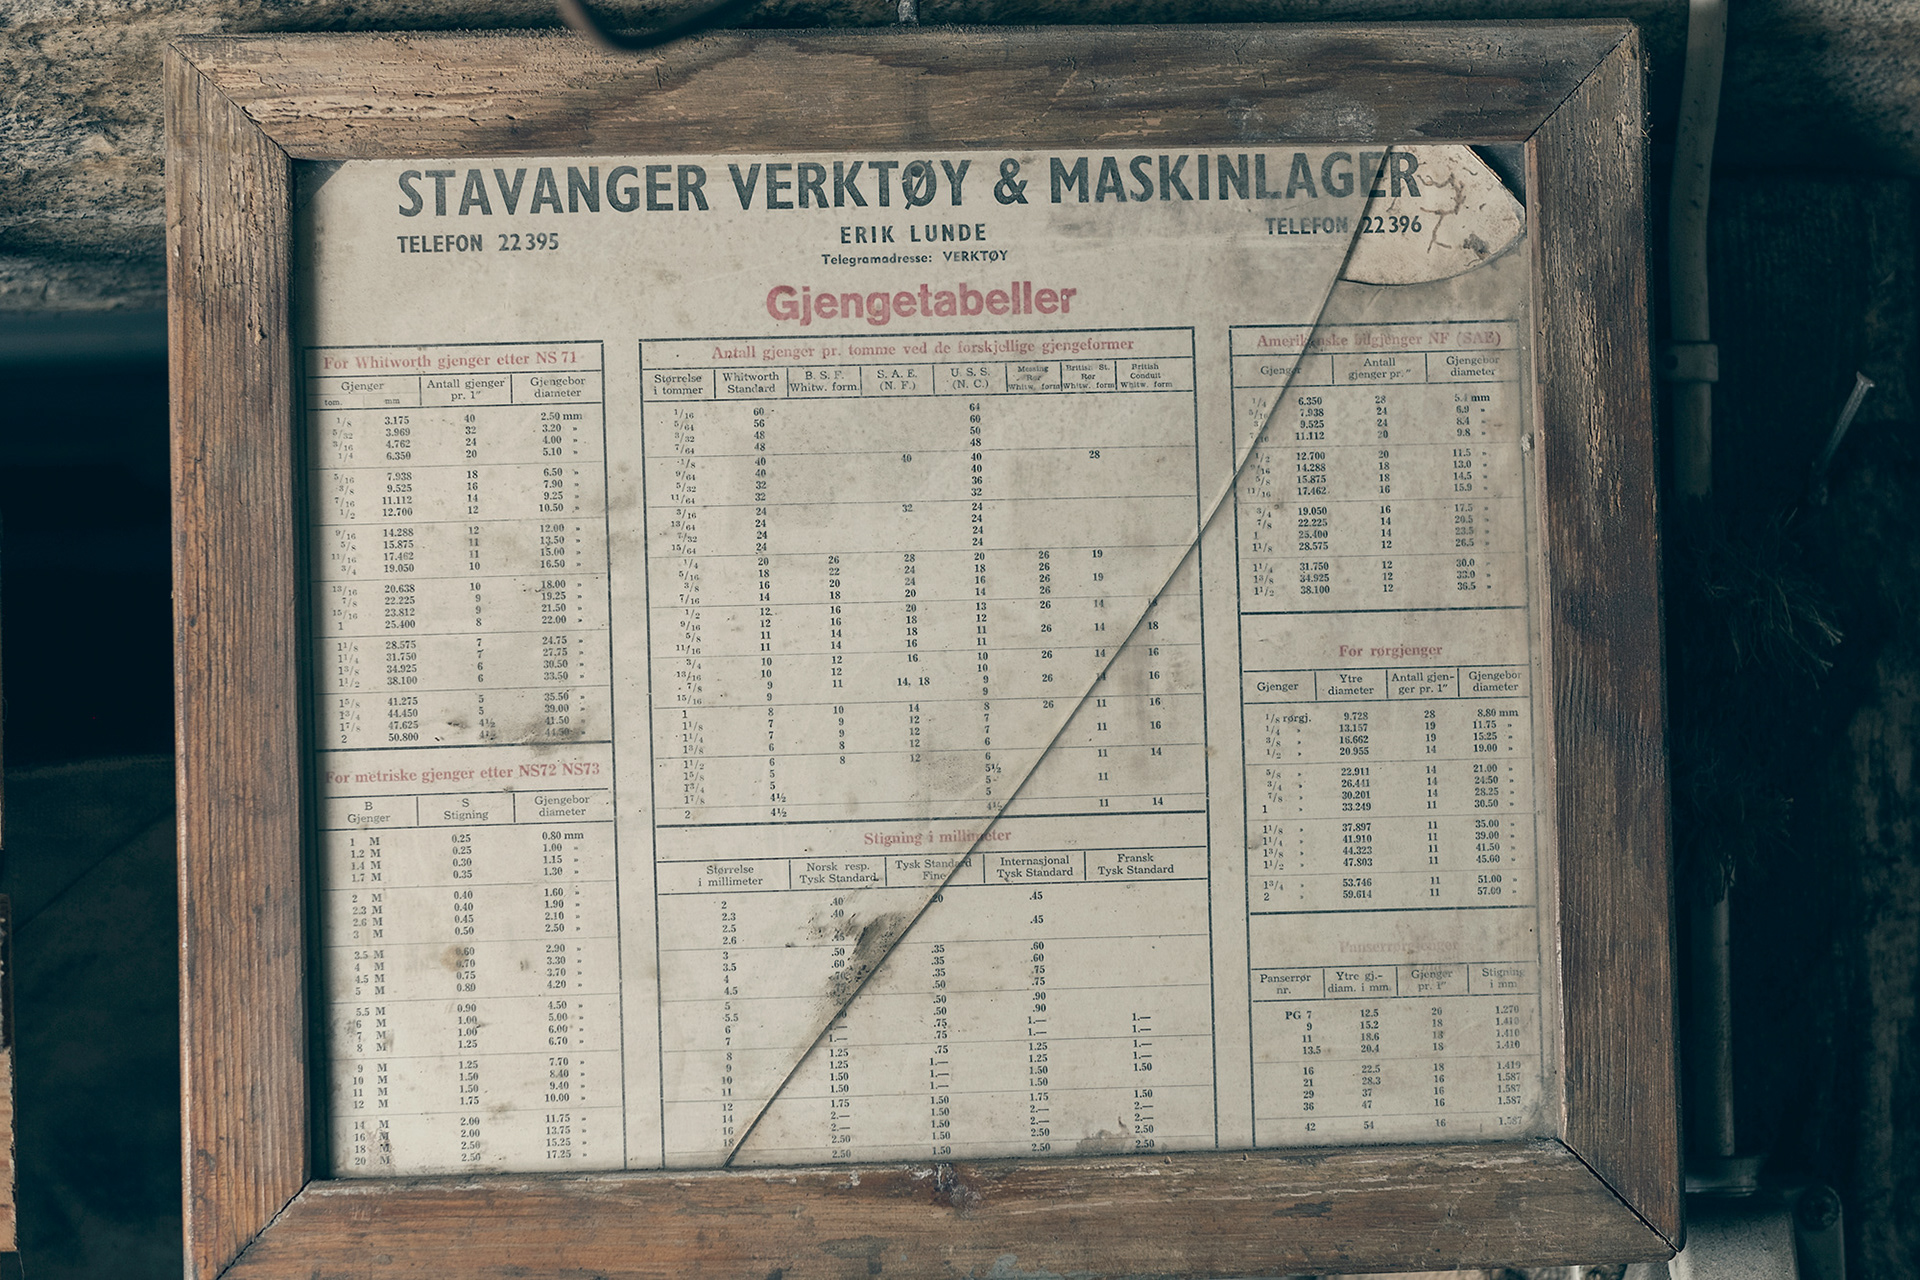 STAVANGER VERKTØY & MASKINLAGER
TELEFON 22 395
ERIK LUNDE
TELEFON 22 396
Telegramadresse: VERKTØY
Gjengetabeller
For Whitworth gjenger etter NS 71
Gjenger Antall gjenger pr. 1" Gjengebor diameter
tom. mm
1/8 3.175 40 2.50 mm
5/32 3.969 32 3.20 »
3/16 4.762 24 4.00 »
1/4 6.350 20 5.10 »
5/16 7.938 18 6.50 »
3/8 9.525 16 7.90 »
7/16 11.112 14 9.25 »
1/2 12.700 12 10.50 »
9/16 14.288 12 12.00 »
5/8 15.875 11 13.50 »
11/16 17.462 11 15.00 »
3/4 19.050 10 16.50 »
13/16 20.638 10 18.00 »
7/8 22.225 9 19.25 »
15/16 23.812 9 21.50 »
1 25.400 8 22.00 »
1 1/8 28.575 7 24.75 »
1 1/4 31.750 7 27.75 »
1 3/8 34.925 6 30.50 »
1 1/2 38.100 6 33.50 »
1 5/8 41.275 5 35.50 »
1 3/4 44.450 5 39.00 »
1 7/8 47.625 4½ 41.50 »
2 50.800 4½ 44.50 »
For metriske gjenger etter NS72 NS73
B Gjenger S Stigning Gjengebor diameter
1 M 0.25 0.80 mm
1.2 M 0.25 1.00 »
1.4 M 0.30 1.15 »
1.7 M 0.35 1.30 »
2 M 0.40 1.60 »
2.3 M 0.40 1.90 »
2.6 M 0.45 2.10 »
3 M 0.50 2.50 »
3.5 M 0.60 2.90 »
4 M 0.70 3.30 »
4.5 M 0.75 3.70 »
5 M 0.80 4.20 »
5.5 M 0.90 4.50 »
6 M 1.00 5.00 »
7 M 1.00 6.00 »
8 M 1.25 6.70 »
9 M 1.25 7.70 »
10 M 1.50 8.40 »
11 M 1.50 9.40 »
12 M 1.75 10.00 »
14 M 2.00 11.75 »
16 M 2.00 13.75 »
18 M 2.50 15.25 »
20 M 2.50 17.25 »
Antall gjenger pr. tomme ved de forskjellige gjengeformer
Størrelse i tommer Whitworth Standard B. S. F. Whitw. form. S. A. E. (N. F.) U. S. S. (N. C.) Messing Rør Whitw. form British St. Rør Whitw. form British Conduit Whitw. form
1/16 60 64
5/64 56 60
3/32 48 50
7/64 48 48
1/8 40 40 40 28
9/64 40 40
5/32 32 36
11/64 32 32
3/16 24 32 24
13/64 24 24
7/32 24 24
15/64 24 24
1/4 20 26 28 20 26 19
5/16 18 22 24 18 26
3/8 16 20 24 16 26 19
7/16 14 18 20 14 26
1/2 12 16 20 13 26 14
9/16 12 16 18 12
5/8 11 14 18 11 26 14 18
11/16 11 14 16 11
3/4 10 12 16 10 26 14 16
13/16 10 12 10
7/8 9 11 14, 18 9 26 14 16
15/16 9 9
1 8 10 14 8 26 11 16
1 1/8 7 9 12 7
1 1/4 7 9 12 7 11 16
1 3/8 6 8 12 6
1 1/2 6 8 12 6 11 14
1 5/8 5 5½
1 3/4 5 5 11
1 7/8 4½ 5
2 4½ 4½ 11 14
Stigning i millimeter
Størrelse i millimeter Norsk resp. Tysk Standard Tysk Standard Fine Internasjonal Tysk Standard Fransk Tysk Standard
2 .40 20 .45
2.3 .40
2.5 .45
2.6 .45
3 .50 .35 .60
3.5 .60 .35 .60
4 .35 .75
4.5 .50 .75
5 .50 .90
5.5 .50 .90
6 1.— .75 1.— 1.—
7 1.— .75 1.— 1.—
8 1.25 .75 1.25 1.—
9 1.25 1.— 1.25 1.—
10 1.50 1.— 1.50 1.50
11 1.50 1.— 1.50
12 1.75 1.50 1.75 1.50
14 2.— 1.50 2.— 2.—
16 2.— 1.50 2.— 2.—
18 2.50 1.50 2.50 2.50
2.50 1.50 2.50 2.50
Amerikanske bilgjenger NF (SAE)
Gjenger Antall gjenger pr." Gjengebor diameter
1/4 6.350 28 5.4 mm
5/16 7.938 24 6.9 »
9.525 24 8.4 »
11.112 20 9.8 »
1/2 12.700 20 11.5 »
9/16 14.288 18 13.0 »
5/8 15.875 18 14.5 »
11/16 17.462 16 15.9 »
3/4 19.050 16 17.5 »
7/8 22.225 14 20.5 »
1 25.400 14 23.5 »
1 1/8 28.575 12 26.5 »
1 1/4 31.750 12 30.0 »
1 3/8 34.925 12 33.0 »
1 1/2 38.100 12 36.5 »
For rørgjenger
Gjenger Ytre diameter Antall gjenger pr. 1" Gjengebor diameter
1/8 rørgj. 9.728 28 8.80 mm
1/4 » 13.157 19 11.75 »
3/8 » 16.662 19 15.25 »
1/2 » 20.955 14 19.00 »
5/8 » 22.911 14 21.00 »
3/4 » 26.441 14 24.50 »
7/8 » 30.201 14 28.25 »
1 » 33.249 11 30.50 »
1 1/8 » 37.897 11 35.00 »
1 1/4 » 41.910 11 39.00 »
1 3/8 » 44.323 11 41.50 »
1 1/2 » 47.803 11 45.00 »
1 3/4 » 53.746 11 51.00 »
2 » 59.614 11 57.00 »
Panserrørgjenger
Panserrør nr. Ytre gj.-diam. i mm. Gjenger pr. 1" Stigning i mm
PG 7 12.5 20 1.270
9 15.2 18 1.410
11 18.6 18 1.410
13.5 20.4 18 1.410
16 22.5 18 1.419
21 28.3 16 1.587
29 37 16 1.587
36 47 16 1.587
42 54 16 1.587